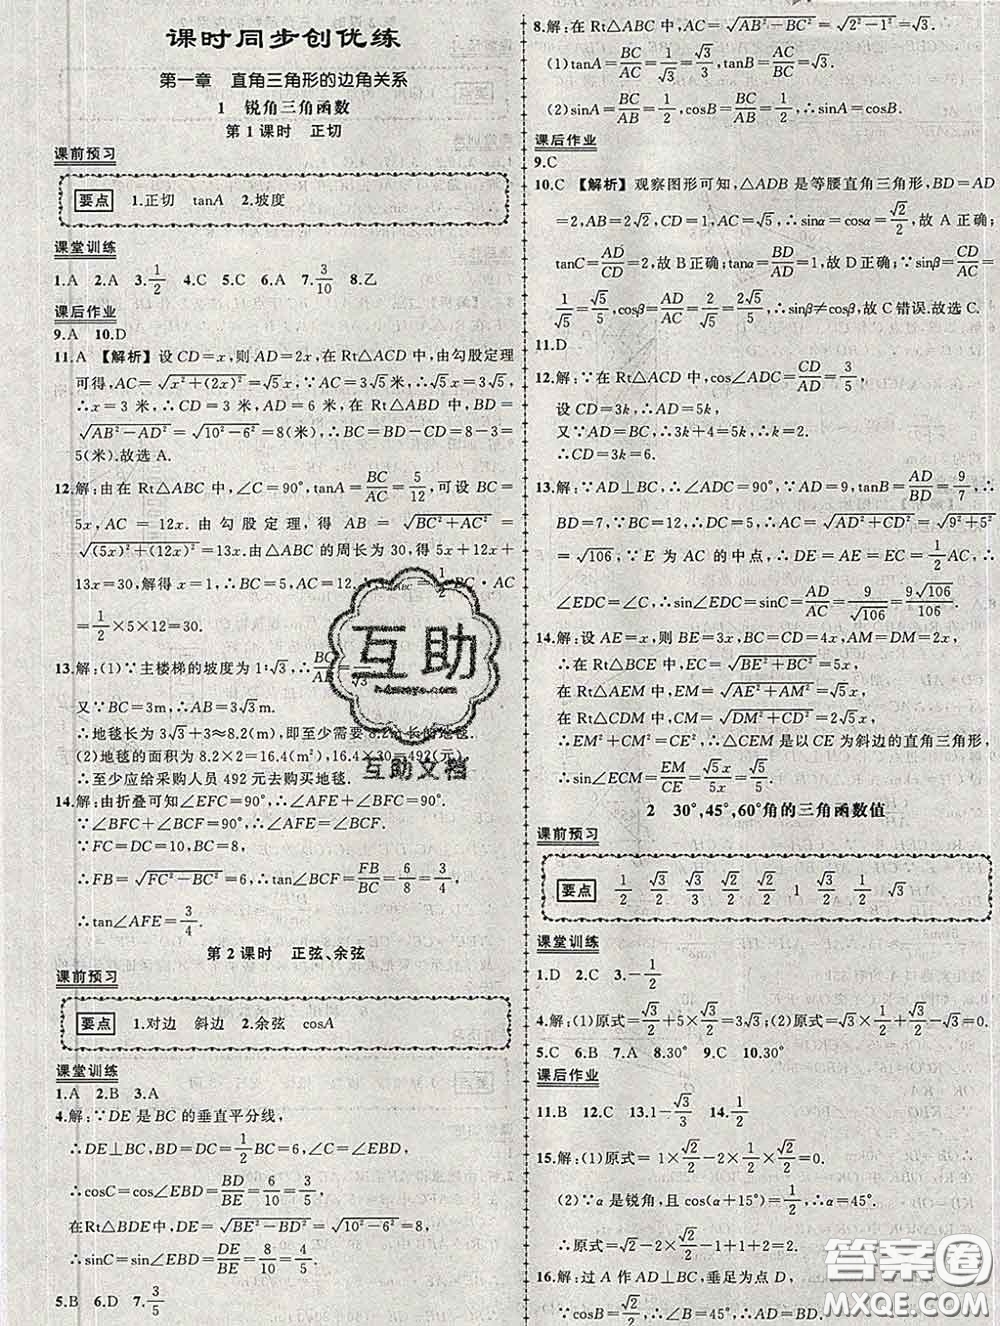 课时同步创优练
第一章 直角三角形的边角关系
1 锐角三角函数
第1课时 正切
课前预习
要点 1.正切 tanA 2.坡度
课堂训练
1.A 2.A 3.1/2 4.C 5.C 6.A 7.3/10 8.乙
课后作业
9.A 10.D
11.A 【解析】设CD=x,则AD=2x,在Rt△ACD中,由勾股定理
可得,AC=√(x²+(2x)²)=√5x米,∵AC=3√5米,∴√5x=3√5,
∴x=3米,∴CD=3米,AD=6米,在Rt△ABD中,BD=
√(AB²-AD²)=√(10²-6²)=8(米),∴BC=BD-CD=8-3=
5(米).故选A.
12.解:由在Rt△ABC中,∠C=90°,tanA=BC/AC=5/12,可设BC=
5x,AC=12x.由勾股定理,得AB=√(BC²+AC²)=
√((5x)²+(12x)²)=13x.由△ABC的周长为30,得5x+12x+
13x=30,解得x=1.∴BC=5,AC=12. 1/2 BC·AC
=1/2×5×12=30.
13.解:(1)∵主楼梯的坡度为1:√3,∴BC/AB= /√3
又∵BC=3m,∴AB=3√3m.
∴地毯长为3√3+3≈8.2(m),即至少需要8.2m长的地毯.
(2)地毯的面积为8.2×2=16.4(m²),16.4×30=492(元)
∴至少应给采购人员492元去购买地毯.
14.解:由折叠可知∠EFC=90°,∴∠AFE+∠BFC=90°.
∵∠BFC+∠BCF=90°,∴∠AFE=∠BCF.
∵FC=DC=10,BC=8,
∴FB=√(FC²-BC²)=6,∴tan∠BCF=FB/BC=6/8=3/4,
∴tan∠AFE=3/4.
第2课时 正弦、余弦
课前预习
要点 1.对边 斜边 2.余弦 cosA
课堂训练
1.A 2.B 3.A
4.解:∵DE是BC的垂直平分线,
∴DE⊥BC,BD=DC=1/2BC=6,∴∠C=∠EBD,
∴cosC=cos∠EBD=BD/BE=6/10=3/5,
在Rt△BDE中,DE=√(BE²-BD²)=√(10²-6²)=8,
∴sinC=sin∠EBD=DE/BE=8/10=4/5.
5.B 6.D 7.3/5
8.解:在Rt△ABC中,AC=√(AB²-BC²)=√(2²-1²)=√3.
(1)tanA=BC/AC=1/√3=√3/3,tanB=AC/BC=√3/1=√3.
(2)sinA=BC/AB=1/2,cosB=BC/AB=1/2,∴sinA=cosB.
课后作业
9.C
10.C 【解析】观察图形可知,△ADB是等腰直角三角形,BD=AD
=2,AB=2√2,CD=1,AC=√5,∴sinα=cosα=√2/2,故A正确;
tanC=AD/CD=2,故B正确;tanα=BD/AD=1,故D正确;∵sinβ=CD/AC=
1/√5=√5/5,cosβ=AD/AC=2/√5=2√5/5,∴sinβ≠cosβ,故C错误.故选C.
11.D
12.解:∵在Rt△ACD中,cos∠ADC=CD/AD=3/5,
设CD=3k,∴AD=5k,
又∵BC=AD,∴3k+4=5k,∴k=2.
∴CD=3k=6.
13.解:∵AD⊥BC,∴∠ADC=90°.∵AD=9,tanB=AD/BD=9/7,
∴BD=7,∵BC=12,∴DC=5,∴AC=√(AD²+CD²)=√(9²+5²)
=√106,∵E为AC的中点,∴DE=AE=EC=1/2AC,∴
∠EDC=∠C,∴sin∠EDC=sinC=AD/AC=9/√106=9√106/106.
14.解:设AE=x,则BE=3x,BC=4x,AM=DM=2x,
∴在Rt△BCE中,EC=√(BE²+BC²)=5x,
在Rt△AEM中,EM=√(AE²+AM²)=√5x,
在Rt△CDM中,CM=√(DM²+CD²)=2√5x,
∴EM²+CM²=CE²,∴△CEM是以CE为斜边的直角三角形,
∴sin∠ECM=EM/CE=√5x/5x=√5/5.
2 30°,45°,60°角的三角函数值
课前预习
要点 1/2 √3/2 √3/3 √2/2 √2/2 1 √3/2 1/2 √3
课堂训练
1.D 2.C 3.-1/2
4.解:(1)原式=√3/2+5×√3/2=3√3;(2)原式=√3/2×1/2+√3/4-√3/2=0.
5.C 6.B 7.A 8.30° 9.C 10.30°
课后作业
11.B 12.C 13.1-√3/3 14.1/2
15.解:(1)原式=1×√2/2-1/2×√2=0.
(2)∵α是锐角,且cos(α+15°)=1/2,∴α=45°.
∴原式=√2-2×√2/2-1+1+2=2.
16.解:过A作AD⊥BC,垂足为点D,
∵cosB=√2/2,∴∠B=45°,∴AD=BD.
互助
互助文档
答案圈
MXQE.COM